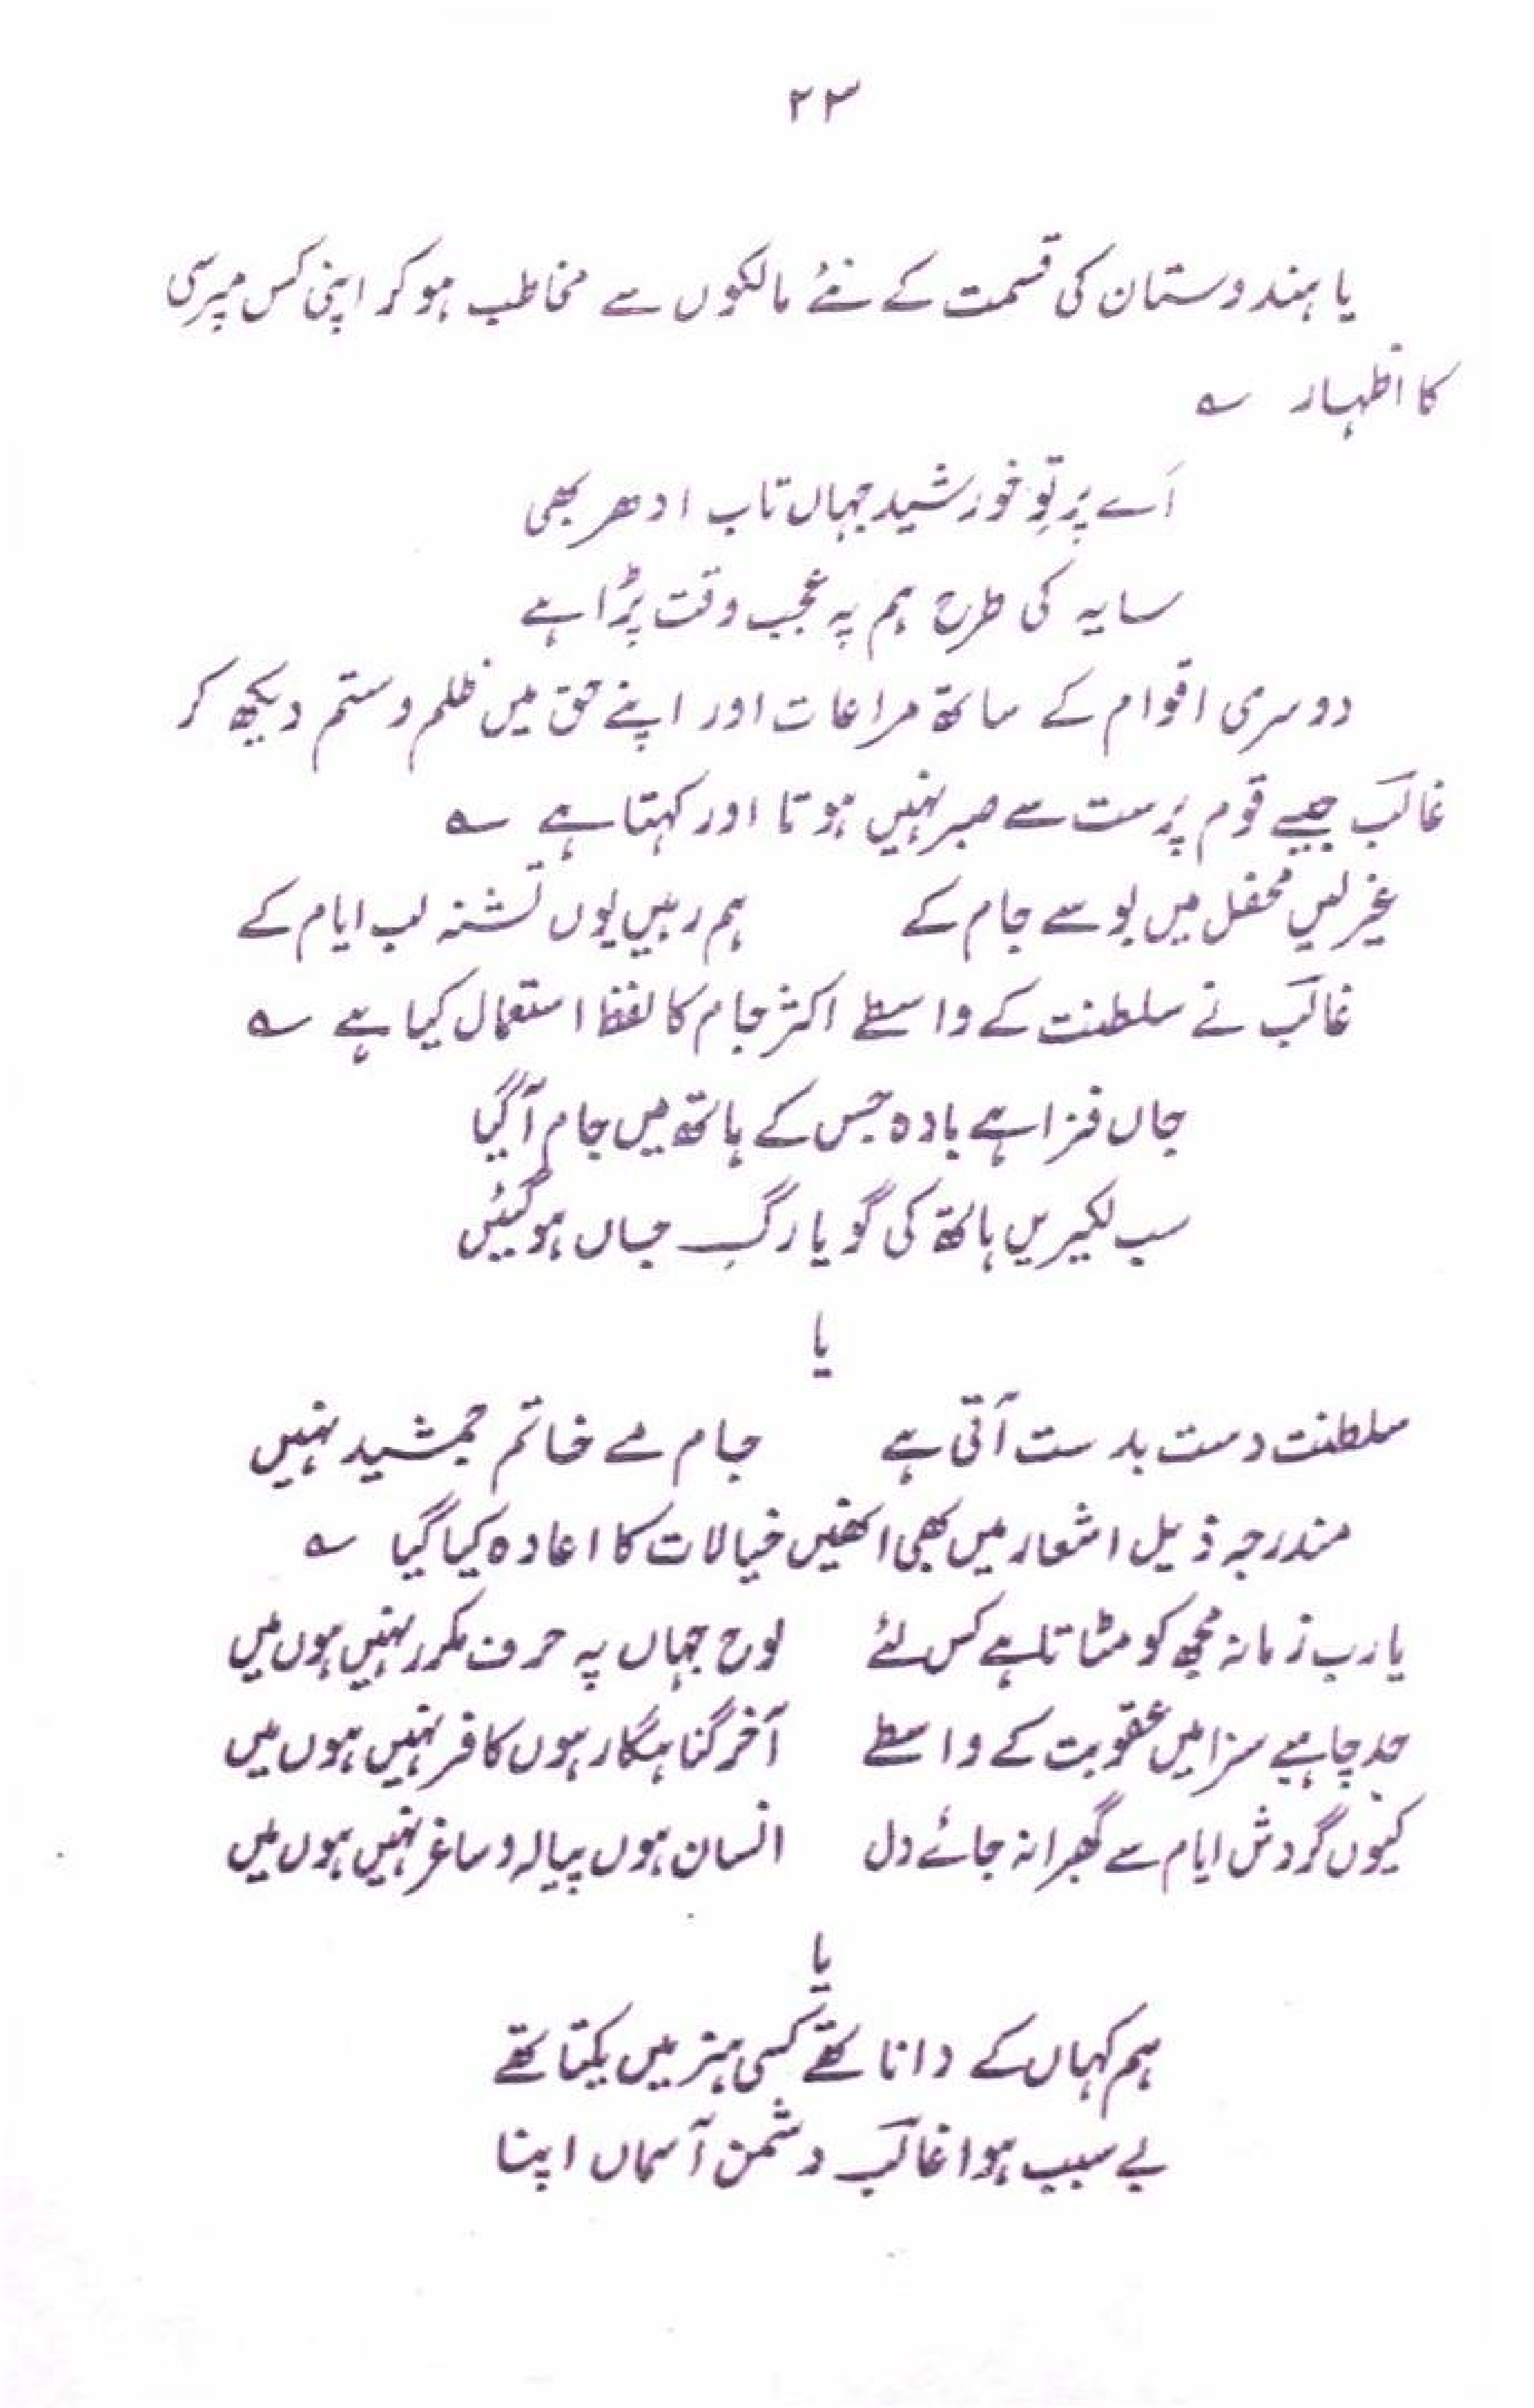 ۲۳
یا ہندوستان کی قسمت کے نئے مالکوں سے مخاطب ہوکر اپنی کس مپرسی
کا اظہار ؎
اَے پرتوِ خورشید جہاں تاب ادھر بھی
سایہ کی طرح ہم پہ عجب وقت پڑا ہے
دوسری اقوام کے ساتھ مراعات اور اپنے حق میں ظلم و ستم دیکھ کر
غالبؔ جیسے قوم پرست سے صبر نہیں ہوتا اور کہتا ہے ؎
غیر لیں محفل میں بوسے جام کے ہم رہیں یوں تشنہ لب ایام کے
غالبؔ نے سلطنت کے واسطے اکثر جام کا لفظ استعمال کیا ہے ؎
جاں فزا ہے بادہ جس کے ہاتھ میں جام آ گیا
سب لکیریں ہاتھ کی گویا رگِ جاں ہوگئیں
یا
سلطنت دست بدست آتی ہے جام مے خاتم جمشید نہیں
مندرجہ ذیل اشعار میں بھی انھیں خیالات کا اعادہ کیا گیا ؎
یارب زمانہ مجھ کو مٹاتا ہے کس لئے لوح جہاں پہ حرف مکرر نہیں ہوں میں
حد چاہیے سزا میں عقوبت کے واسطے آخر گناہگار ہوں کافر نہیں ہوں میں
کیوں گردش ایام سے گھبرا نہ جائے دل انسان ہوں پیالہ و ساغر نہیں ہوں میں
یا
ہم کہاں کے دانا تھے کسی ہنر میں یکتا تھے
بے سبب ہوا غالبؔ دشمن آسماں اپنا